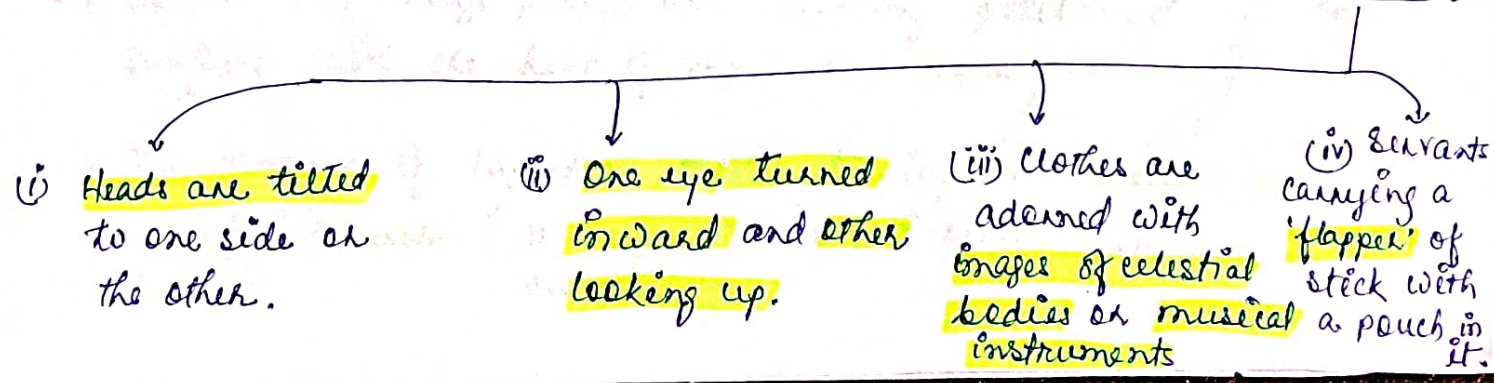 (i) Heads are tilted
to one side or
the other.
(ii) One eye turned
inward and other
looking up.
(iii) Clothes are
adorned with
images of celestial
bodies or musical
instruments
(iv) Servants
carrying a
'flapper' of
stick with
a pouch in
it.